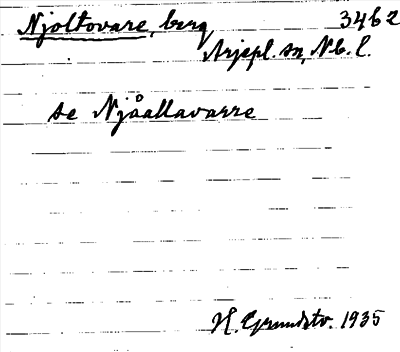 Njoltovare, berg 3462
Arjepl. sn, Nb. l.
se Njåallavarre
H. Grundstr. 1935